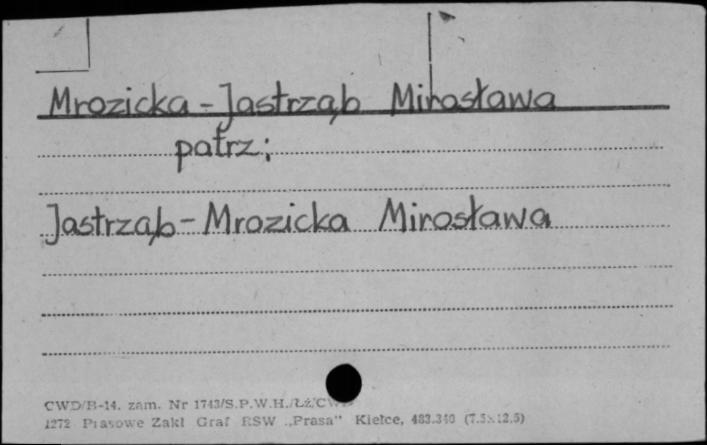 Mrozicka-Jastrząb Mirosława
patrz:
Jastrząb-Mrozicka Mirosława
CWD/B-14. zam. Nr 1743/S.P.W.H./ŁŻ/CWD
1272 Prasowe Zakł Graf RSW „Prasa" Kielce, 483.340 (7.5x12.5)